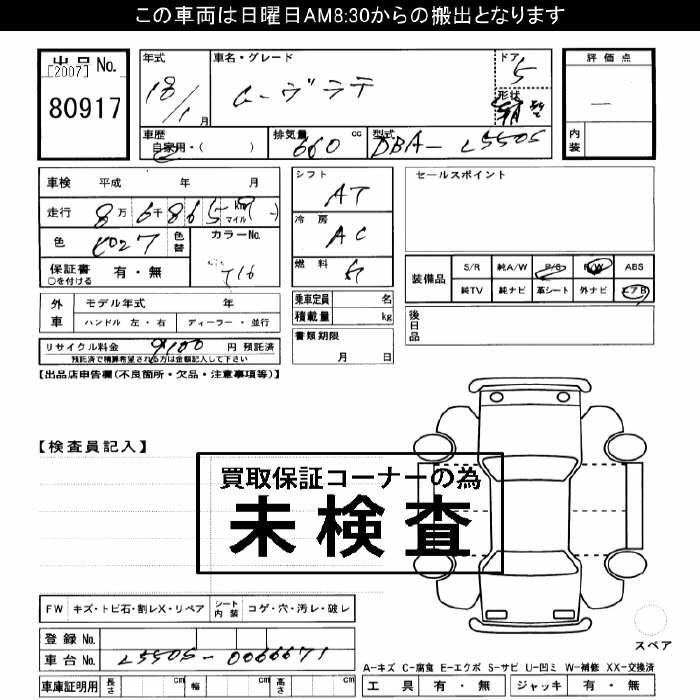 この車両は日曜日AM8:30からの搬出となります
出品No.
[2007]
80917
年式
18/1月
車名・グレード
ムーヴラテ
ドア
5
形状
評価点
—
内装
車歴
自家用・( )
排気量
660 cc
型式
DBA- L550S
車検 平成 年 月
走行 8万 6千 865 km マイル
色 色替
カラーNo.
T16
保証書 有・無
○を付ける
シフト
AT
冷房
AC
燃料
ガ
セールスポイント
装備品
S/R 純A/W P/S P/W ABS
純TV 純ナビ 革シート 外ナビ エアB
外車
モデル年式 年
ハンドル 左・右 ディーラー・並行
乗車定員 名
積載量 kg
後日品
リサイクル料金 9100 円 預託済
預託済で精算希望される方は金額記入して下さい
書類期限
月 日
【出品店申告欄(不良箇所・欠品・注意事項等)】
【検査員記入】
買取保証コーナーの為
未検査
FW キズ・トビ石・割レX・リペア シート内装 コゲ・穴・汚レ・破レ
登録No.
車台No. L550S-0066671
車庫証明用 長さ cm 幅 cm 高さ cm
スペア
A-キズ C-腐食 E-エクボ S-サビ U-凹ミ W-補修 XX-交換済
工具 有・無 ジャッキ 有・無